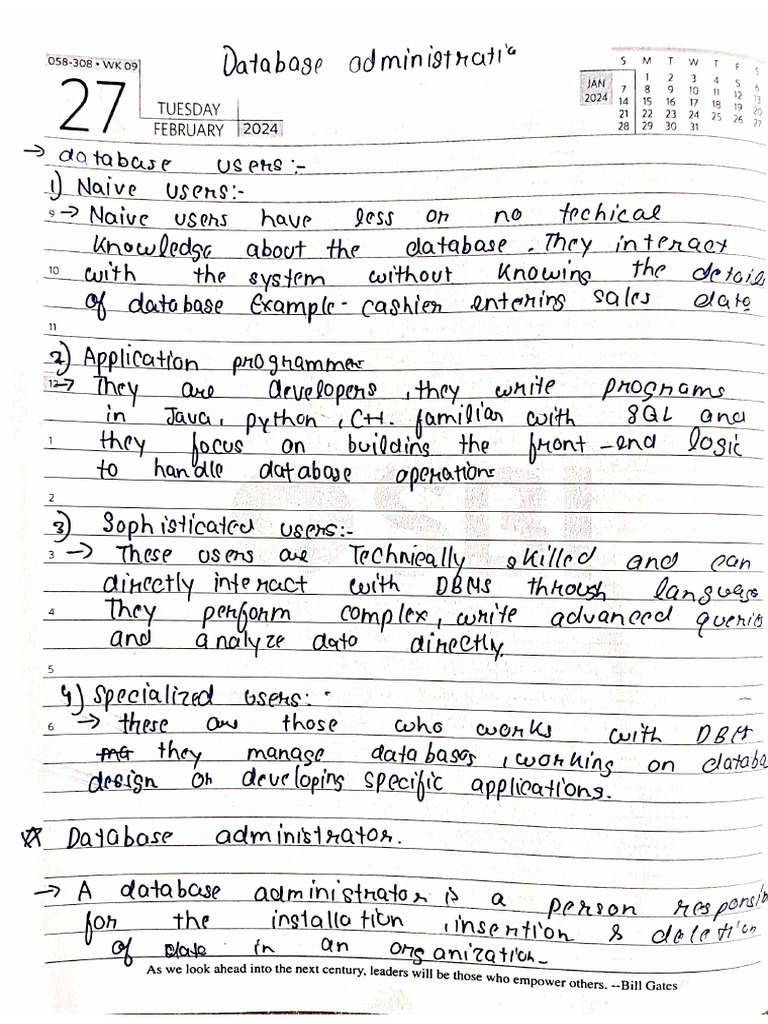 Database administratio
058-308 • WK 09
27
TUESDAY
FEBRUARY 2024
JAN 2024
S M T W T F S
1 2 3 4 5 6
7 8 9 10 11 12 13
14 15 16 17 18 19 20
21 22 23 24 25 26 27
28 29 30 31
→ database users:-
1) Naive users:-
9 → Naive users have less or no techical
knowledge about the database. They interact
10 with the system without knowing the details
of database Example- cashier entering sales data
11
2) Application programmer
12 → They are developers, they write programs
in Java, python, C++. familiar with SQL and
1 they focus on building the front-end logic
to handle database operations
2
SBI
3) Sophisticated users:-
3 → These users are Technically skilled and can
directly interact with DBMS through language
4 They perform complex, write advanced queries
and analyze data directly.
5
4) Specialized users:-
6 → these are those who works with DBM
they manage databases, working on databa
design or developing specific applications.
☆ Database administrator.
→ A database administrator is a person responsib
for the installation, insertion & deletion
of data in an organization-
As we look ahead into the next century, leaders will be those who empower others. --Bill Gates